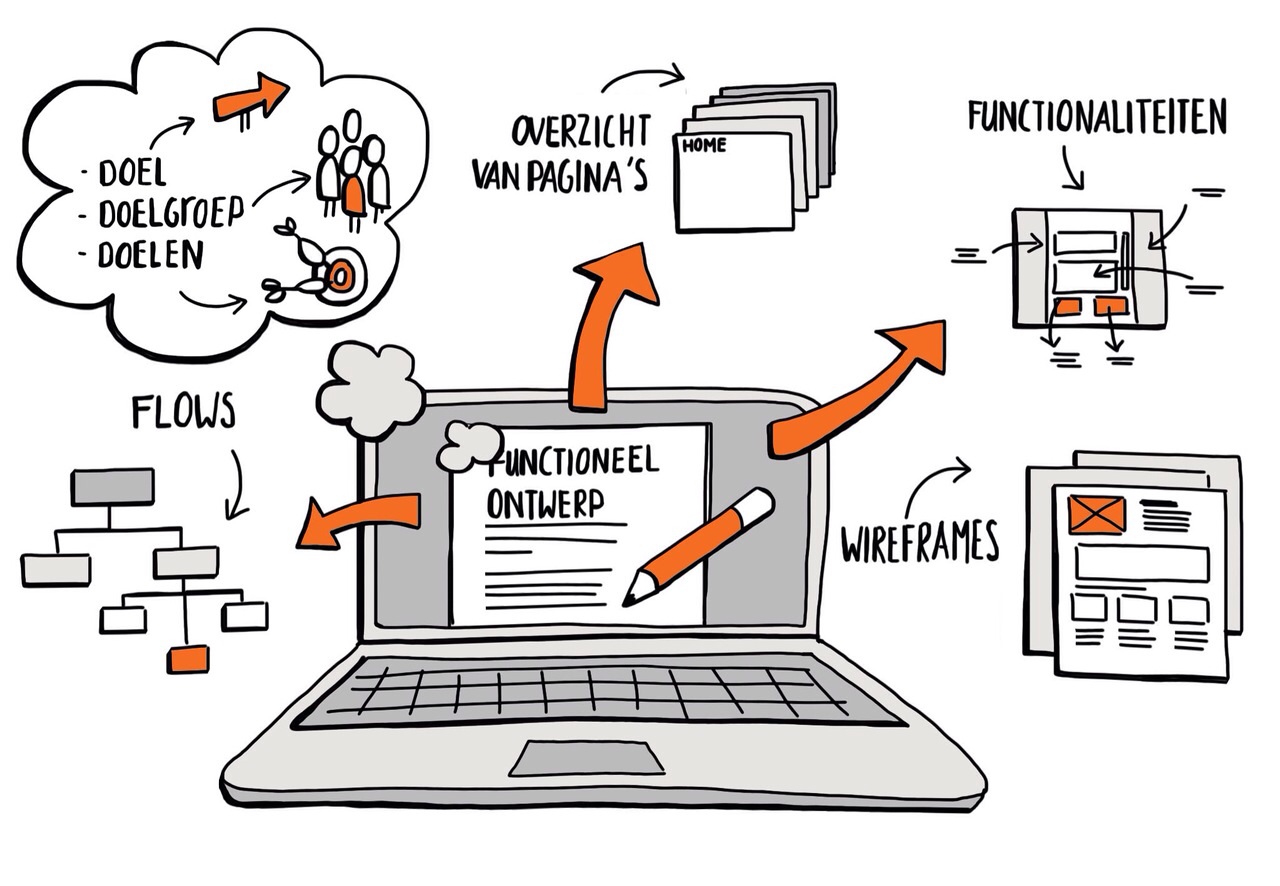 - DOEL
- DOELGROEP
- DOELEN
OVERZICHT
VAN PAGINA'S
HOME
FUNCTIONALITEITEN
FLOWS
FUNCTIONEEL
ONTWERP
WIREFRAMES